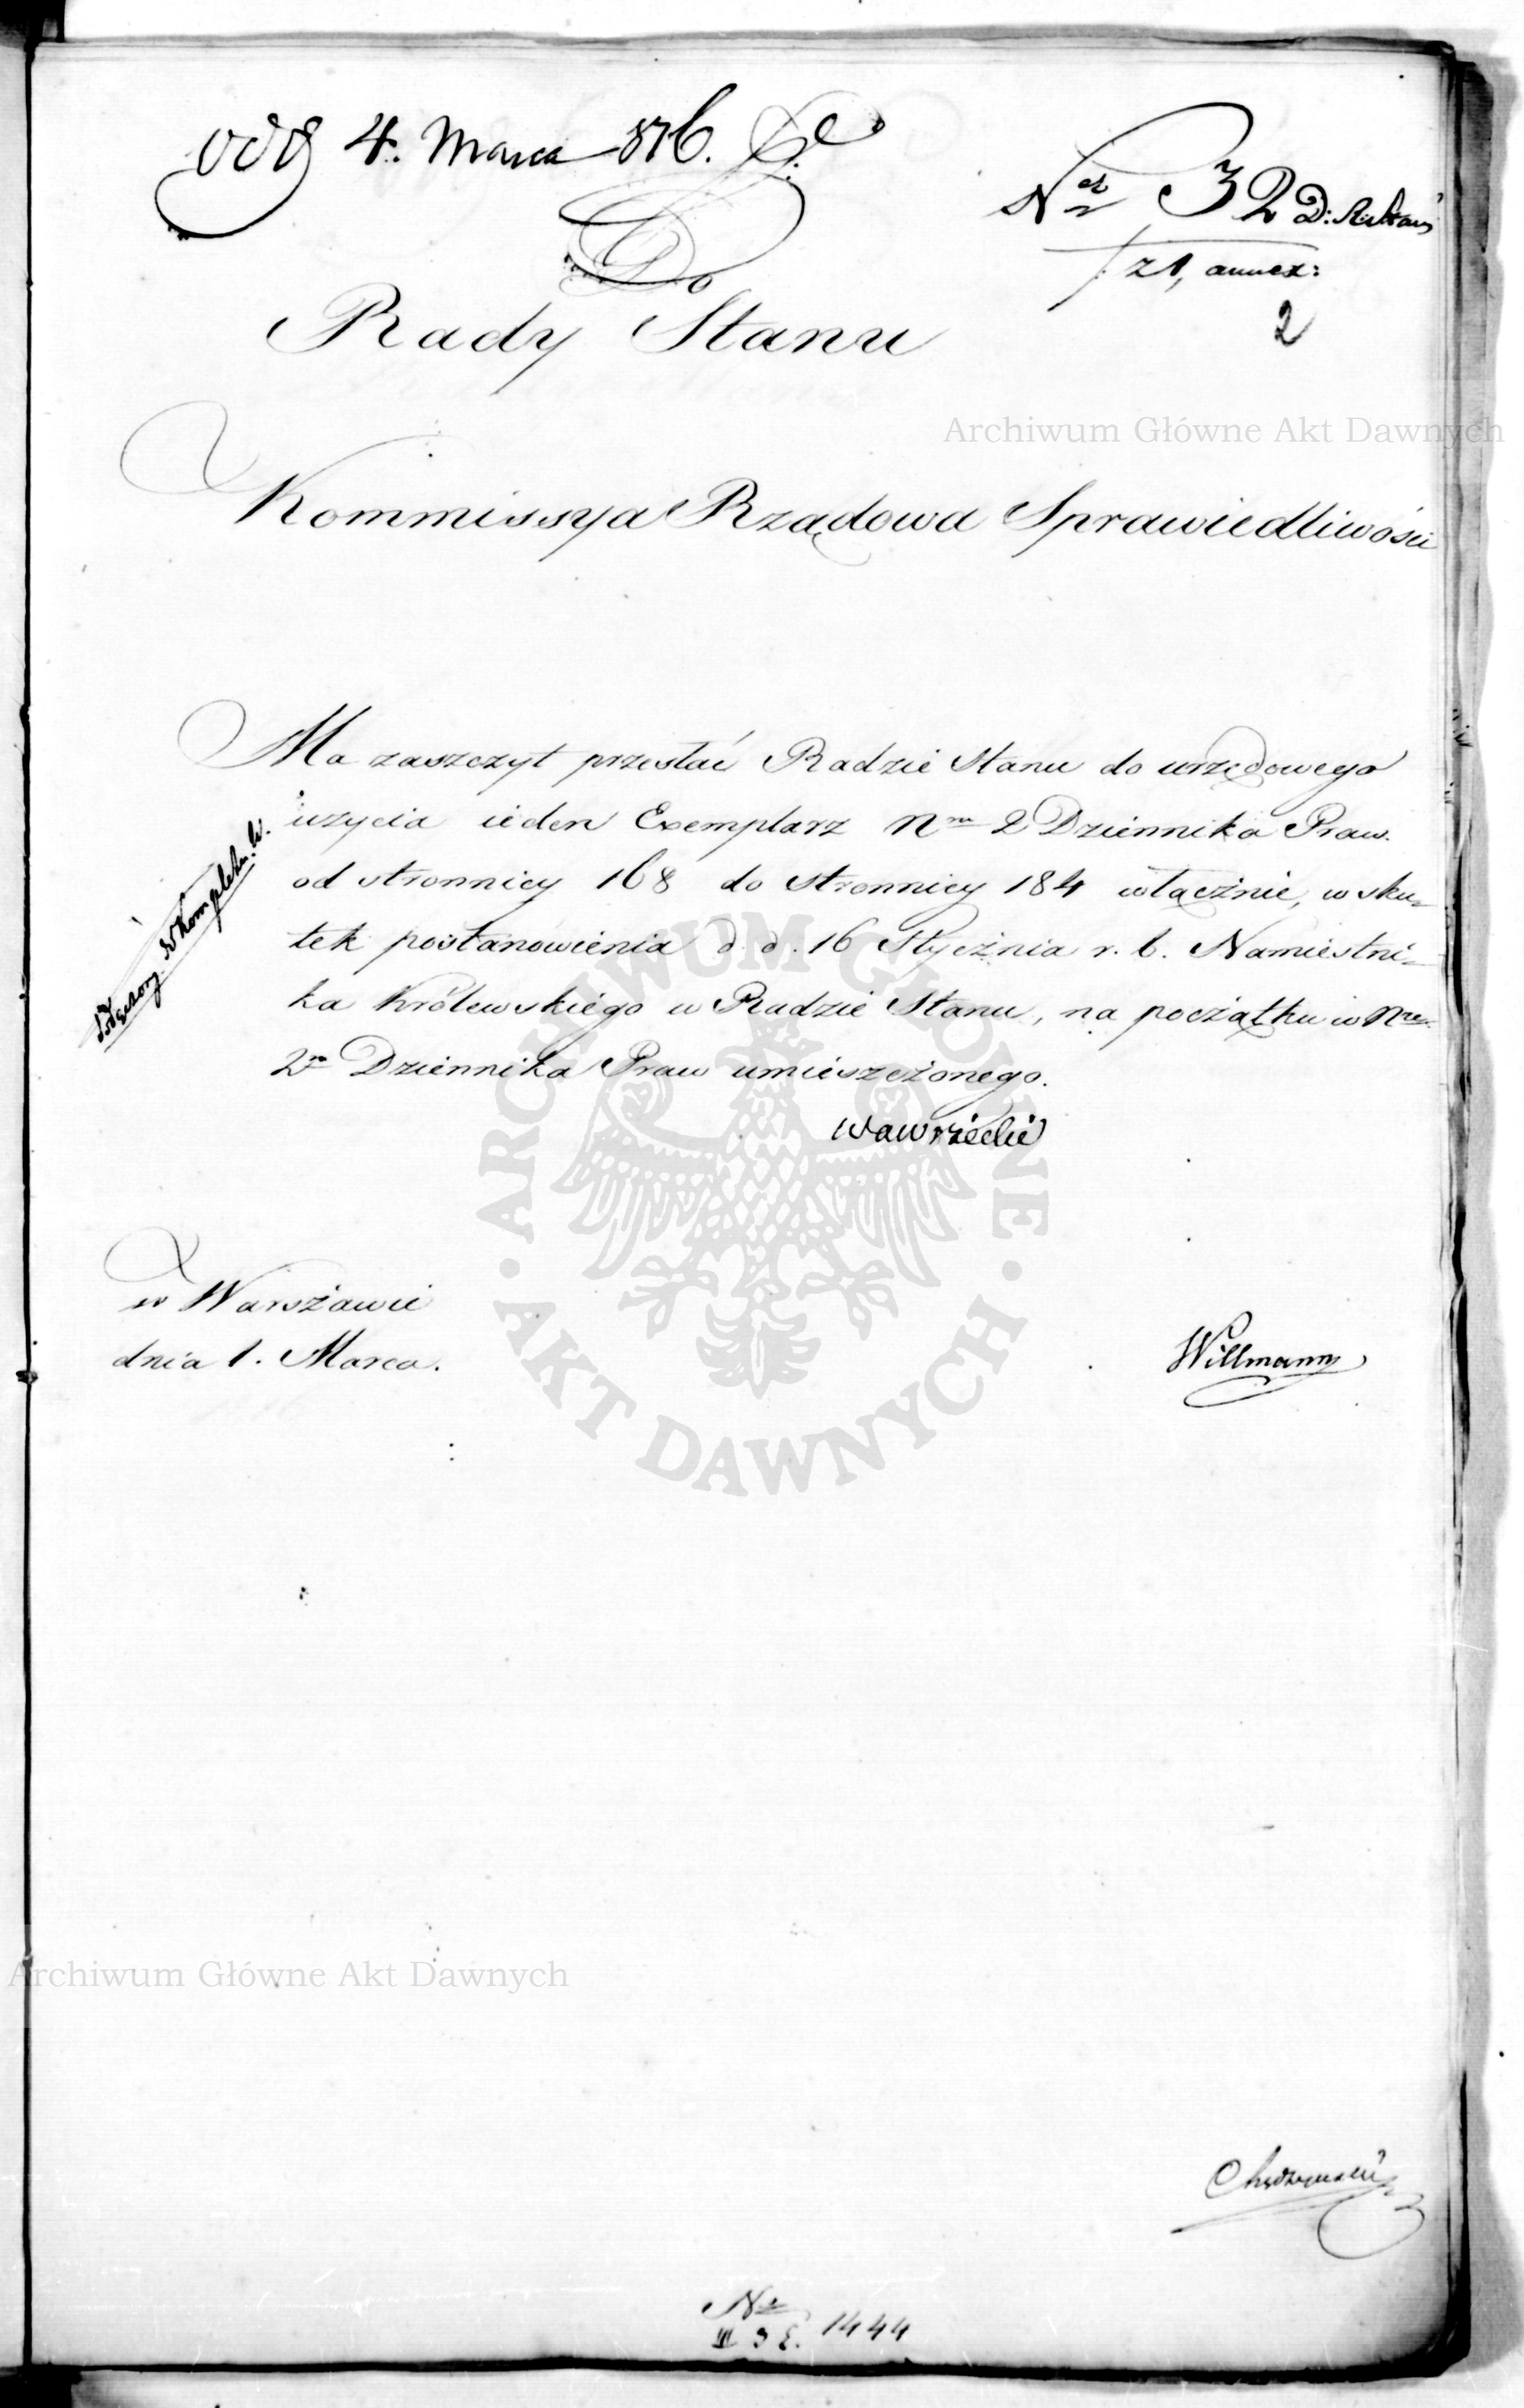 4. Marca 816.
Nr 32 D: R: Stanu
z 1, annex:
2
Do
Rady Stanu
Archiwum Główne Akt Dawnych
Kommissya Rządowa Sprawiedliwości
Ma zaszczyt przesłać Radzie Stanu do urzędowego
użycia ieden Exemplarz Nru 2 Dziennika Praw.
od stronnicy 168 do stronnicy 184 włącznie, w sku=
tek postanowienia d. d. 16 Stycznia r. b. Namiestni=
ka Królewskiégo w Radzie Stanu, na początku w Nrze
2m Dziennika Praw umieszczonego.
Wawrzecki
w Warszawie
dnia 1. Marca.
Willmann
ARCHIWUM GŁÓWNE · AKT DAWNYCH ·
Archiwum Główne Akt Dawnych
No 1444